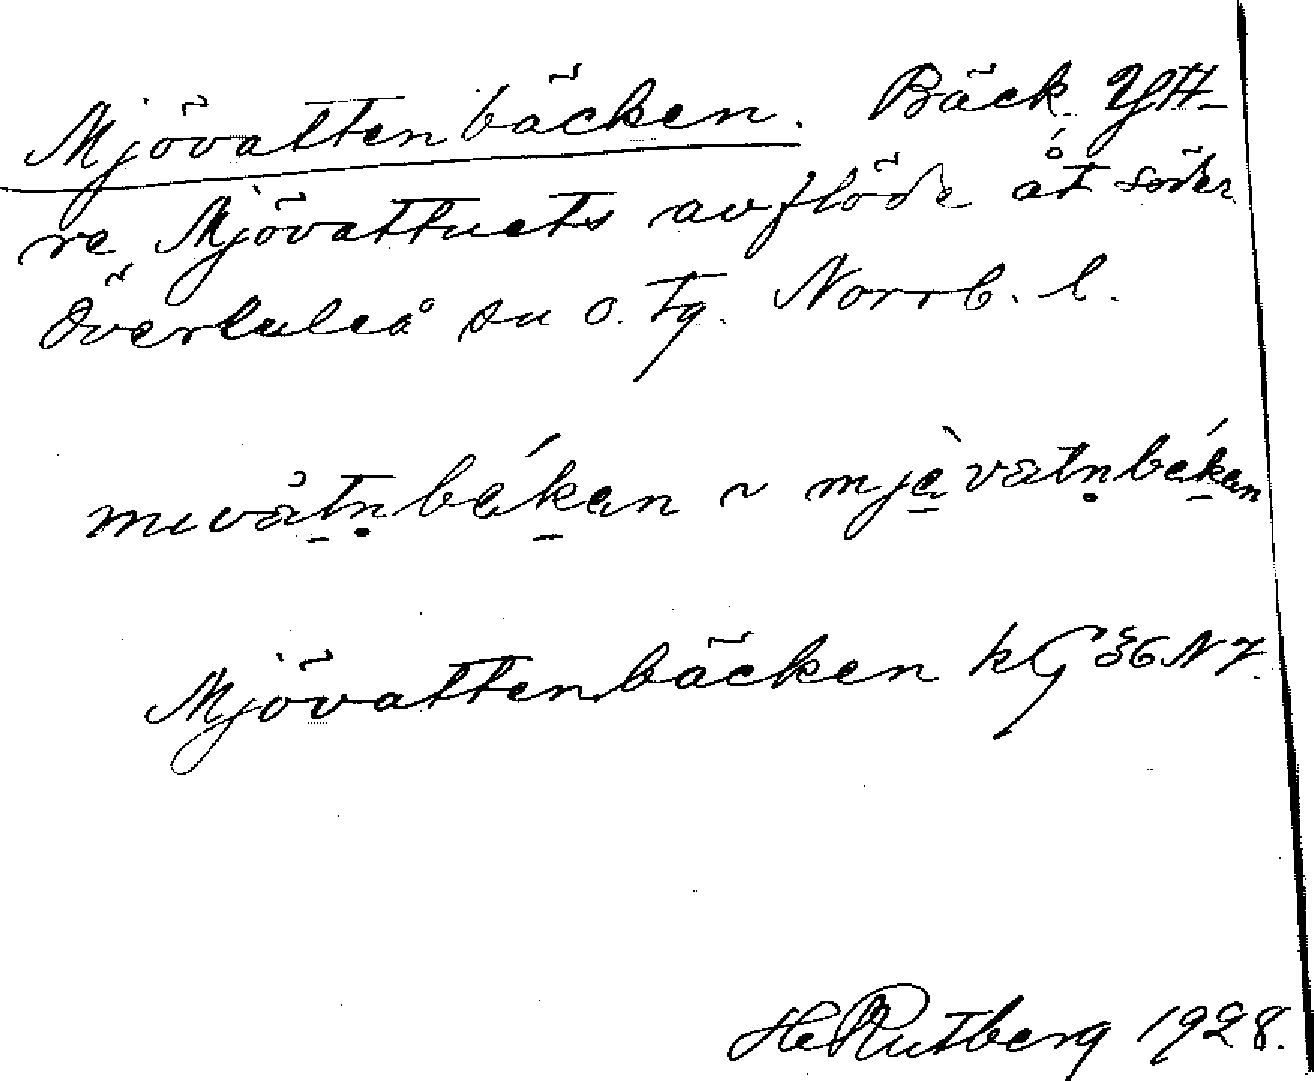 Mjövattenbäcken. Bäck. Ytt-
re Mjövattnets avflöde åt söder
Överluleå sn o. tg. Norrb. l.
~
Mjövattenbäcken kG 36 N 7.
He Rutberg 1928.